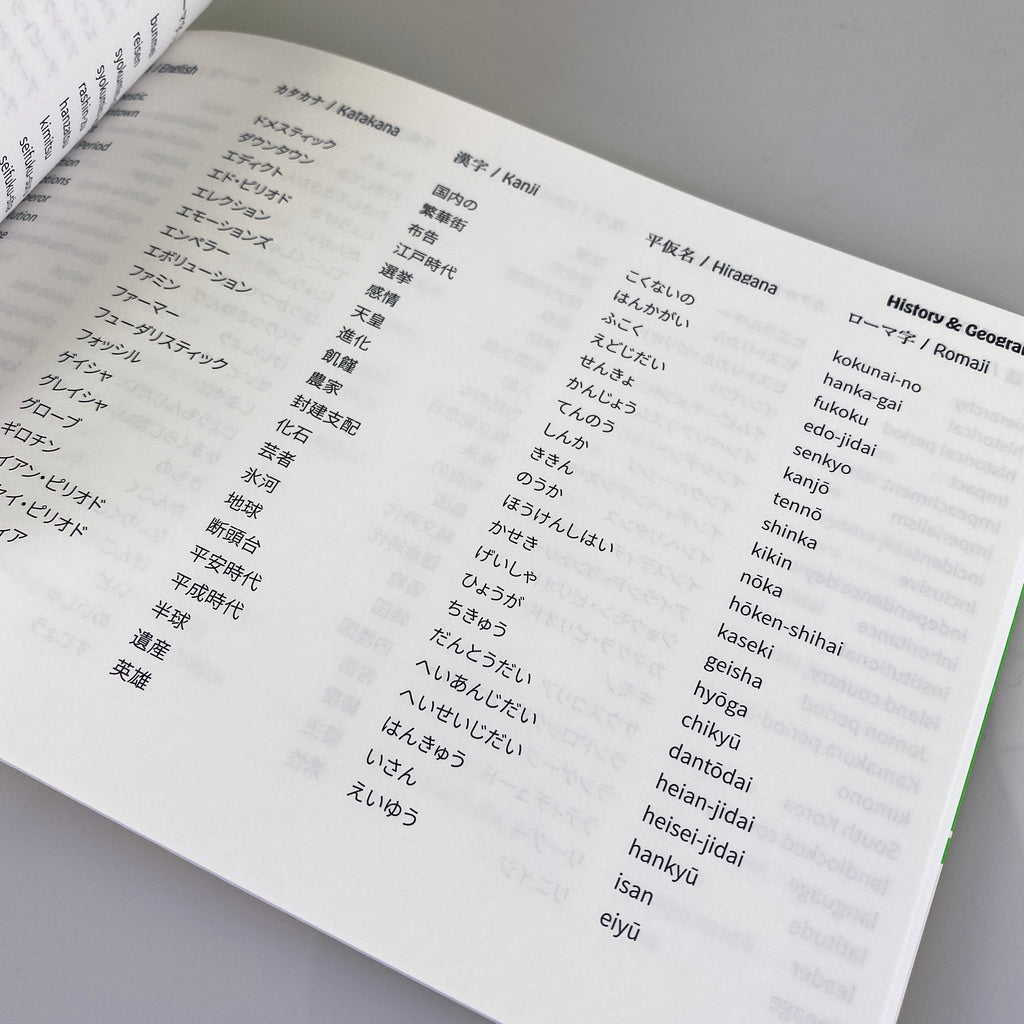 bunmei
reisen
hanzatsu
kimitsu
History & Geogra
/ English
Period
カタカナ / Katakana
ドメスティック
ダウンタウン
エディクト
エド・ピリオド
エレクション
エモーションズ
エンペラー
エボリューション
ファミン
ファーマー
フューダリスティック
フォッシル
ゲイシャ
グレイシャ
グローブ
ギロチン
イアン・ピリオド
セイ・ピリオド
ィア
漢字 / Kanji
国内の
繁華街
布告
江戸時代
選挙
感情
天皇
進化
飢饉
農家
封建支配
化石
芸者
氷河
地球
断頭台
平安時代
平成時代
半球
遺産
英雄
平仮名 / Hiragana
こくないの
はんかがい
ふこく
えどじだい
せんきょ
かんじょう
てんのう
しんか
ききん
のうか
ほうけんしはい
かせき
げいしゃ
ひょうが
ちきゅう
だんとうだい
へいあんじだい
へいせいじだい
はんきゅう
いさん
えいゆう
ローマ字 / Romaji
kokunai-no
hanka-gai
fukoku
edo-jidai
senkyo
kanjō
tennō
shinka
kikin
nōka
hōken-shihai
kaseki
geisha
hyōga
chikyū
dantōdai
heian-jidai
heisei-jidai
hankyū
isan
eiyū